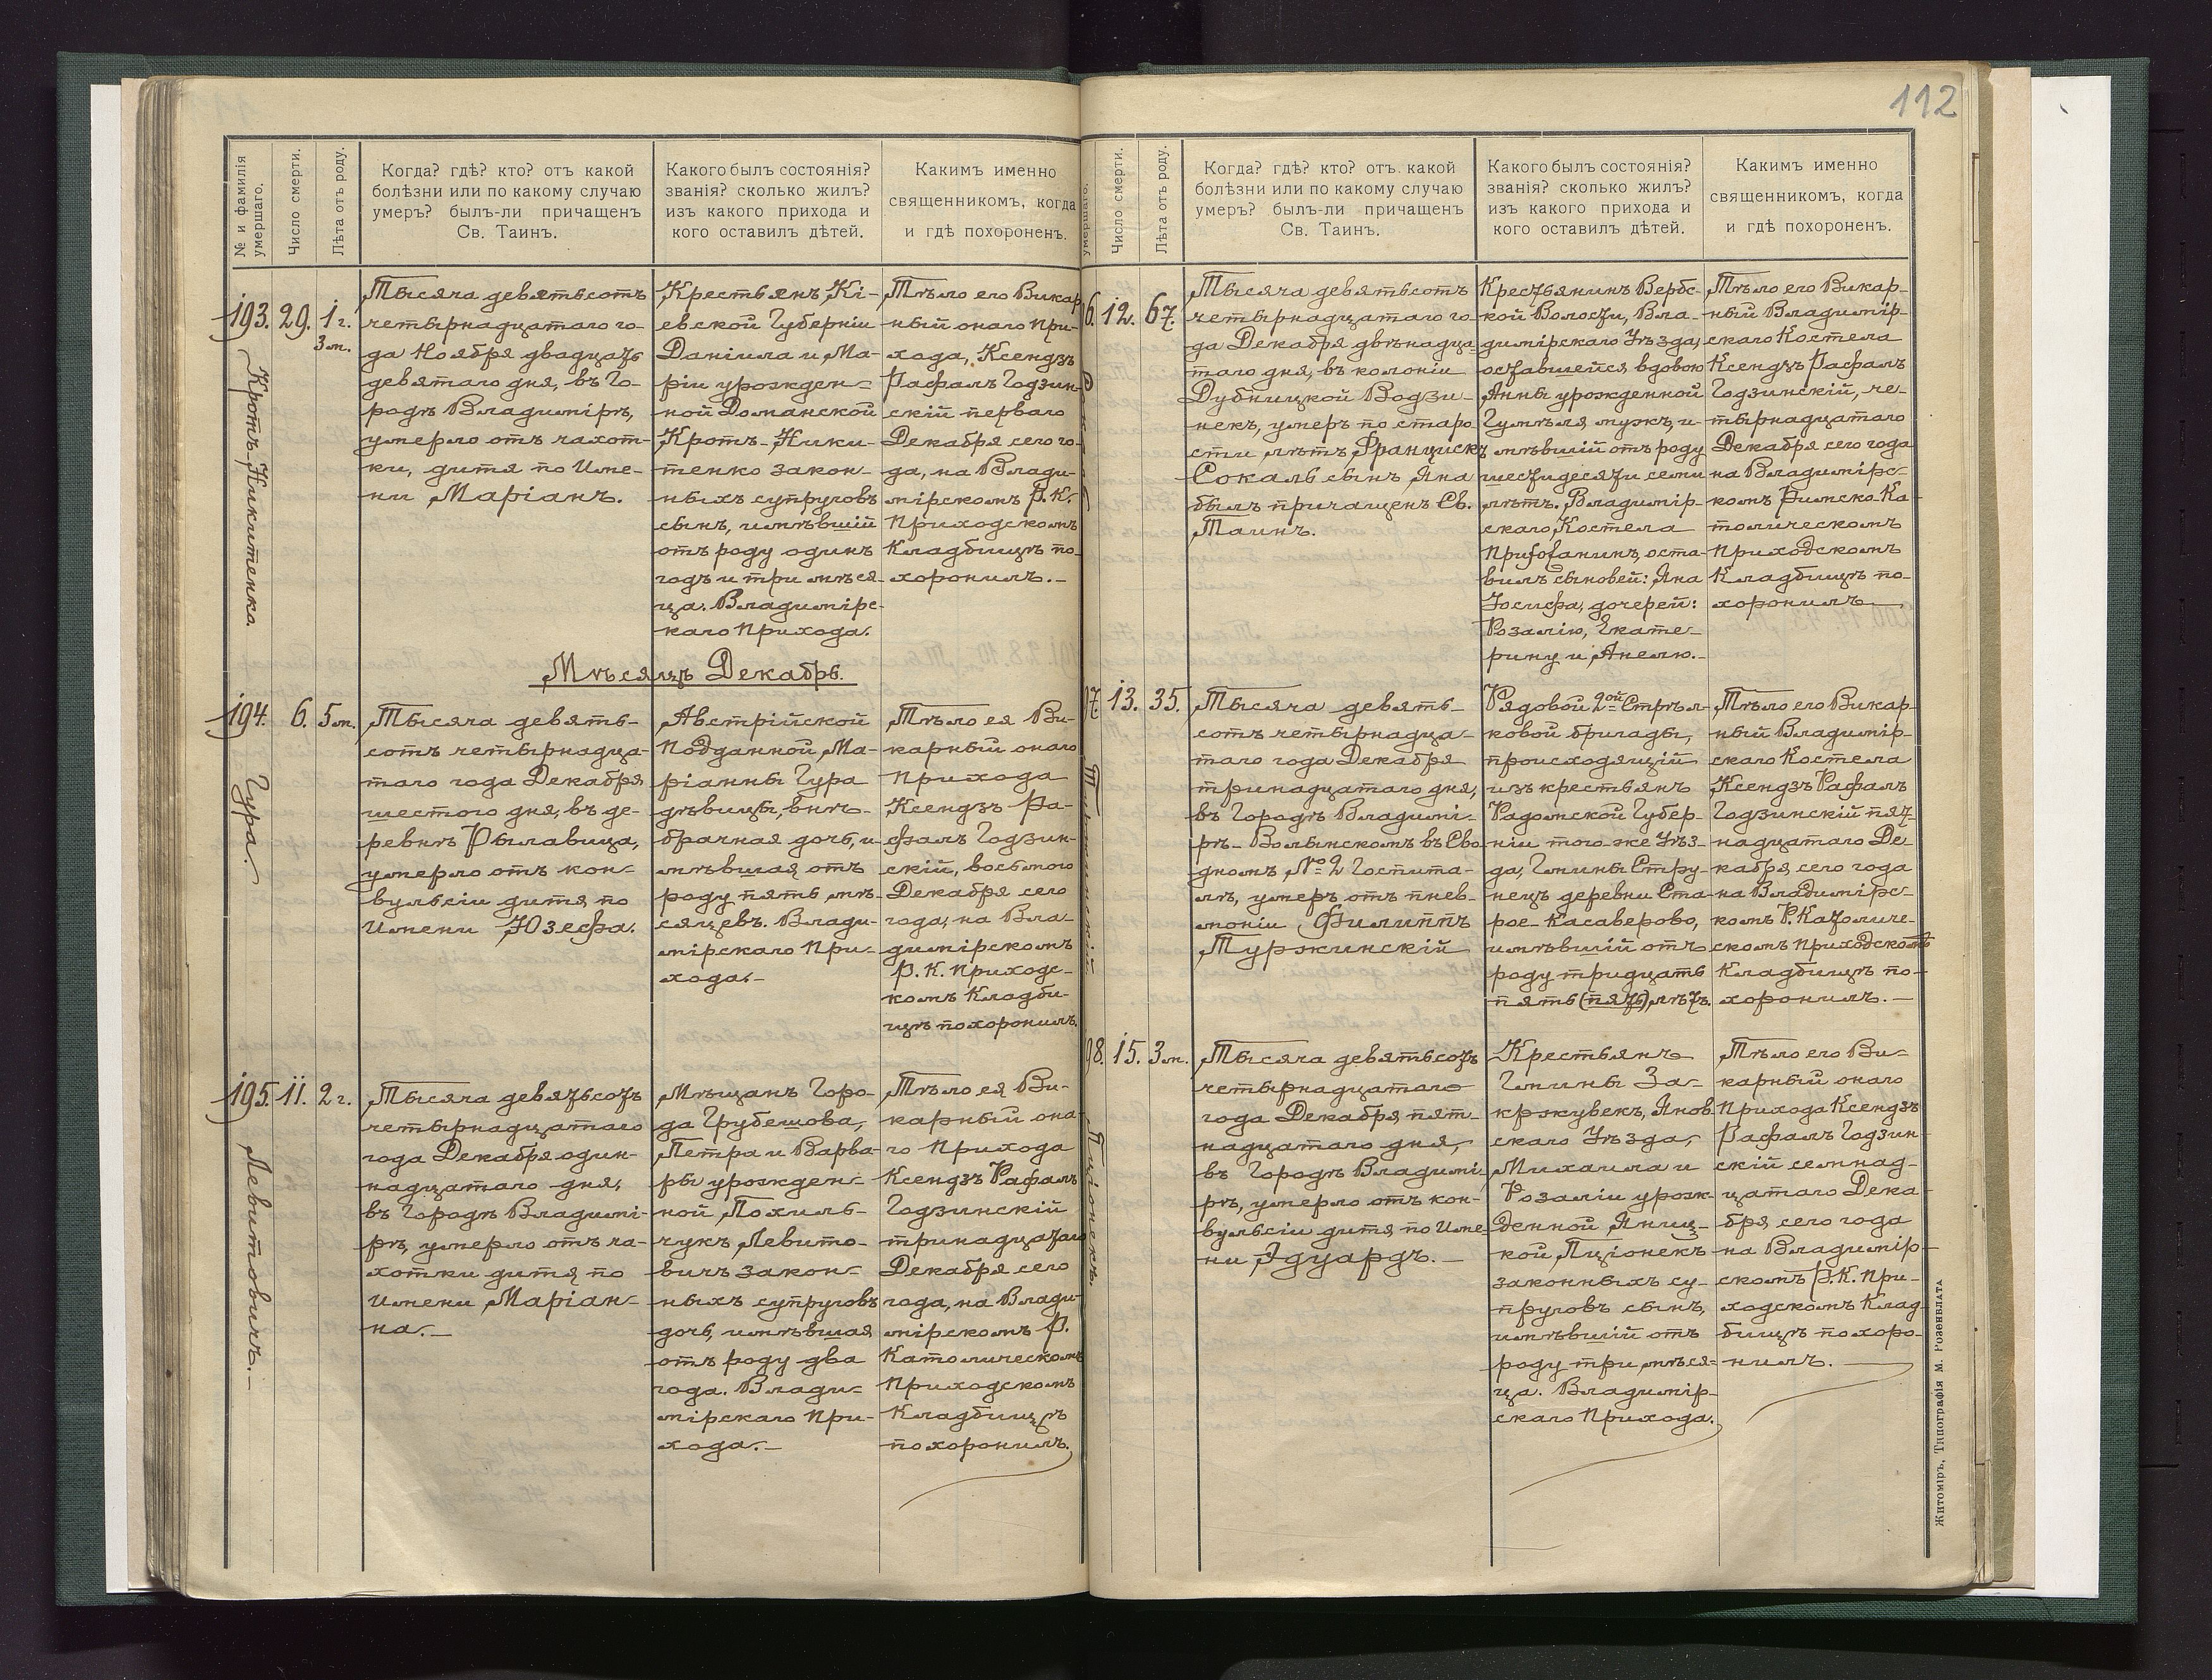 112
№ и фамилія
умершаго.
Число смерти.
Лѣта отъ роду.
Когда? гдѣ? кто? отъ какой
болѣзни или по какому случаю
умеръ? былъ-ли причащенъ
Св. Таинъ.
Какого былъ состоянія?
званія? сколько жилъ?
изъ какого прихода и
кого оставилъ дѣтей.
Какимъ именно
священникомъ, когда
и гдѣ похороненъ.
193.
Кротъ-Никитенко.
29.
1 г.
3 м.
Тысяча девятьсотъ
четырнадцатаго го-
да Ноября двадцать
девятаго дня, въ Го-
родѣ Владимірѣ,
умерло отъ чахот-
ки, дитя по Име-
ни Маріанъ.
Крестьянъ Кі-
евской Губерніи
Даніила и Ма-
ріи урожден-
ной Доманской
Кротъ-Ники-
тенко закон-
ныхъ супруговъ
сынъ, имѣвшій
отъ роду одинъ
годъ и три мѣся-
ца. Владимірс-
каго Прихода.
Тѣло его Викар-
ный онаго При-
хода, Ксендзъ
Рафалъ Годзин-
скій перваго
Декабря сего го-
да, на Влади-
мірскомъ Р. К.
Приходскомъ
Кладбищѣ по-
хоронилъ.-
Мѣсяцъ Декабрь.
194.
Гура.
6.
5 м.
Тысяча девять-
сотъ четырнадца-
таго года Декабря
шестого дня, въ де-
ревнѣ Рылавица,
умерло отъ кон-
вульсіи дитя по
Имени Юзефа.
Австрійской
Подданной Ма-
ріанны Гура
дѣвицы, внѣ-
брачная дочь, и-
мѣвшая отъ
роду пять мѣ-
сяцевъ. Влади-
мірскаго При-
хода.-
Тѣло ея Ви-
карный онаго
Прихода
Ксендзъ Ра-
фалъ Годзин-
скій, восьмого
Декабря сего
года, на Вла-
димірскомъ
Р. К. Приходс-
комъ Кладби-
щѣ похоронилъ.
195.
Левитовичъ.-
11.
2 г.
Тысяча девятьсотъ
четырнадцатаго
года Декабря один-
надцатаго дня,
въ Городѣ Владимі-
рѣ, умерло отъ ча-
хотки дитя по
Имени Маріан-
на.-
Мѣщанъ Горо-
да Грубешова,
Петра и Варва-
ры урожден-
ной Похиль-
чукъ Левито-
вичъ закон-
ныхъ супруговъ
дочь, имѣвшая
отъ роду два
года. Влади-
мірскаго При-
хода.-
Тѣло ея Ви-
карный она-
го Прихода
Ксендзъ Рафалъ
Годзинскій
тринадцатаго
Декабря сего
года, на Влади-
мірскомъ Р.
Католическомъ
Приходскомъ
Кладбищѣ
похоронилъ.
умершаго.
Число смерти.
Лѣта отъ роду.
Когда? гдѣ? кто? отъ. какой
болѣзни или по какому случаю
умеръ? былъ-ли причащенъ
Св. Таинъ.
Какого былъ состоянія?
званія? сколько жилъ?
изъ какого прихода и
кого оставилъ дѣтей.
Какимъ именно
священникомъ, когда
и гдѣ похороненъ.
6.
12.
67.
Тысяча девятьсотъ
четырнадцатаго го-
да Декабря двѣнадца-
таго дня, въ колоніи
Дубницкой Водзи-
некъ, умеръ по старо-
сти лѣтъ, Францискъ
Сокаль сынъ Яна
былъ причащенъ Св.
Таинъ.
Крестьянинъ Вербс-
кой Волости, Вла-
димірскаго Уѣзда,
оставшейся вдовою
Анны урожденной
Гумѣля мужъ, и-
мѣвшій отъ роду
шестьдесяти семи
лѣтъ. Владимір-
скаго Костела
Прихожанинъ, оста-
вилъ сыновей: Яна
Іосифа, дочерей:
Розалію, Екате-
рину и Анелю.-
Тѣло его Викар-
ный Владимір-
скаго Костела
Ксендзъ Рафалъ
Годзинскій, че-
тырнадцатаго
Декабря сего года
на Владимірс-
комъ Римско-Ка-
толическомъ
Приходскомъ
Кладбищѣ по-
хоронилъ-
97.
13.
35.
Тысяча девять-
сотъ четырнадца-
таго года Декабря
тринадцатаго дня,
въ Городѣ Владимі-
рѣ-Волынскомъ въ Сво-
дномъ № 2 Госпита-
лѣ, умеръ отъ пнев-
моніи Филиппъ
Туржинскій
Рядовой 2ой Стрѣл-
ковой бригады,
происходящій
изъ крестьянъ
Радомской Губер-
ніи того-же Уѣз-
да, Гмины Стру-
нецъ деревни Ста-
рое-Касаверово,
имѣвшій отъ
роду тридцать
пять (пять) лѣтъ.
Тѣло его Викар-
ный Владимір-
скаго Костела
Ксендзъ Рафалъ
Годзинскій пят-
надцатаго Де-
кабря, сего года
на Владимірс-
комъ Р. Католиче-
скомъ Приходскомъ
Кладбищѣ по-
хоронилъ.-
98.
Пціонекъ.
15.
3 м.
Тысяча девятьсотъ
четырнадцатаго
года Декабря пят-
надцатаго дня,
въ Городѣ Владимі-
рѣ, умерло отъ кон-
вульсіи дитя по Име-
ни Эдуардъ.-
Крестьянъ
Гмины За-
кржувекъ, Янов-
скаго Уѣзда,
Михаила и
Розаліи урож-
денной Яниц-
кой Пціонекъ
законныхъ су-
пруговъ сынъ,
имѣвшій отъ
роду три мѣся-
ца. Владимір-
скаго Прихода.
Тѣло его Ви-
карный онаго
Прихода Ксендзъ
Рафалъ Годзин-
скій семнад-
цатаго Дека-
бря сего года
на Владимір-
скомъ Р.К. При-
ходскомъ Клад-
бищѣ похоро-
нилъ.
Житоміръ, Типографія М. Розенблата